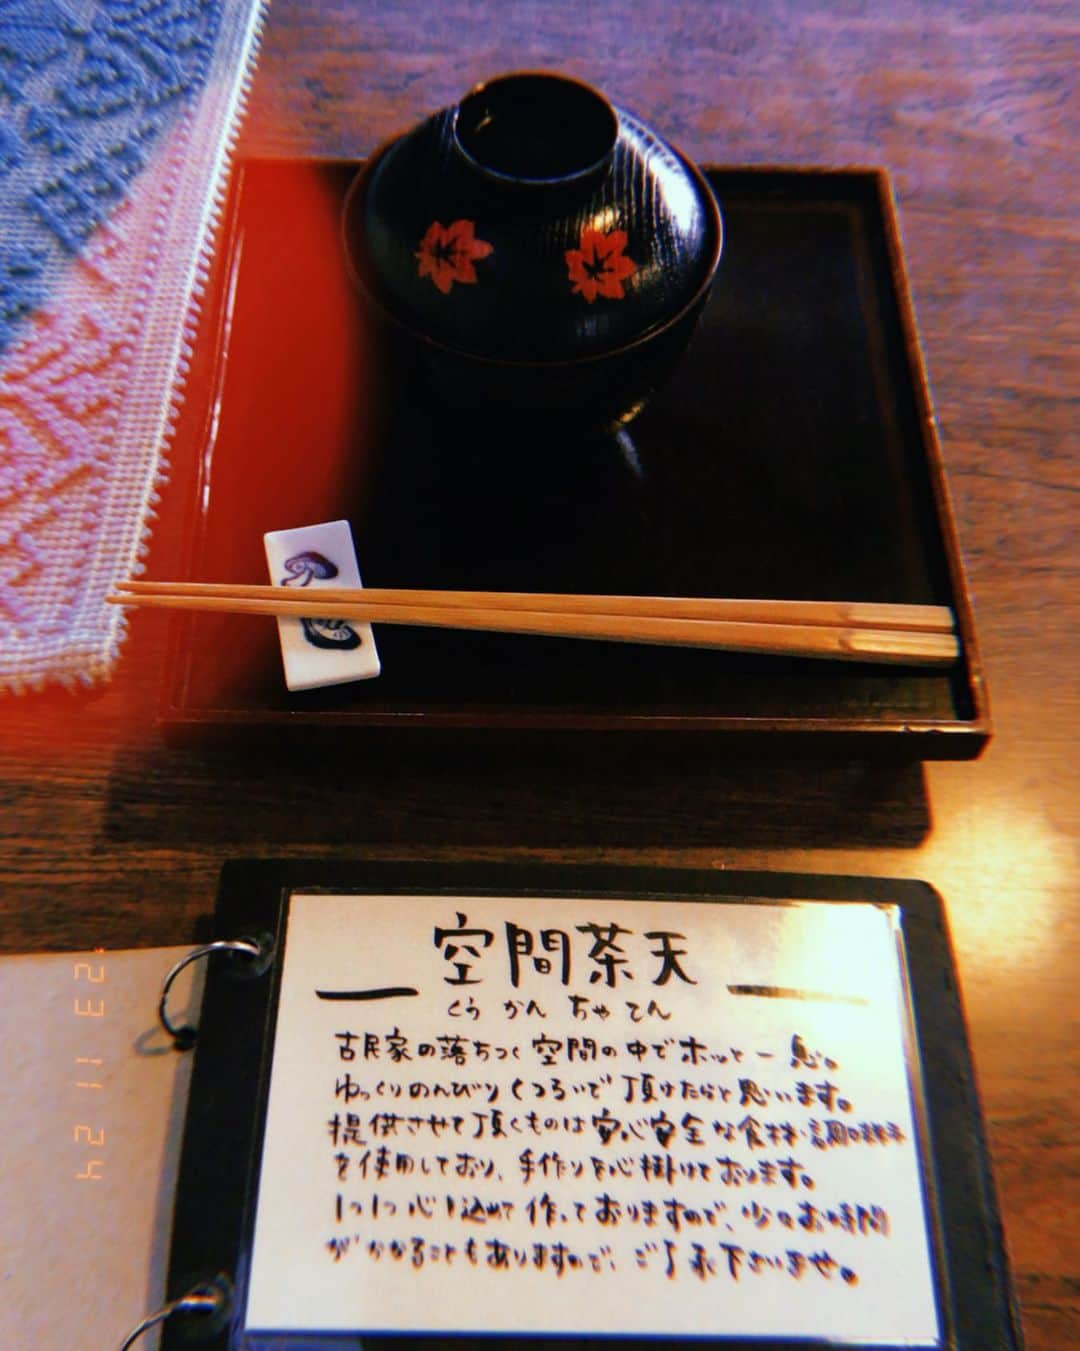 空間茶天
くう かん ちゃ てん
古民家の落ちつく空間の中でホッと一息。
ゆっくりのんびりくつろいで頂けたらと思います。
提供させて頂くものは安心安全な食材・調味料
を使用しており、手作りを心掛けております。
1つ1つ心を込めて作っておりますので、少々お時間
がかかることもありますので、ご了承下さいませ。
'23 11 24